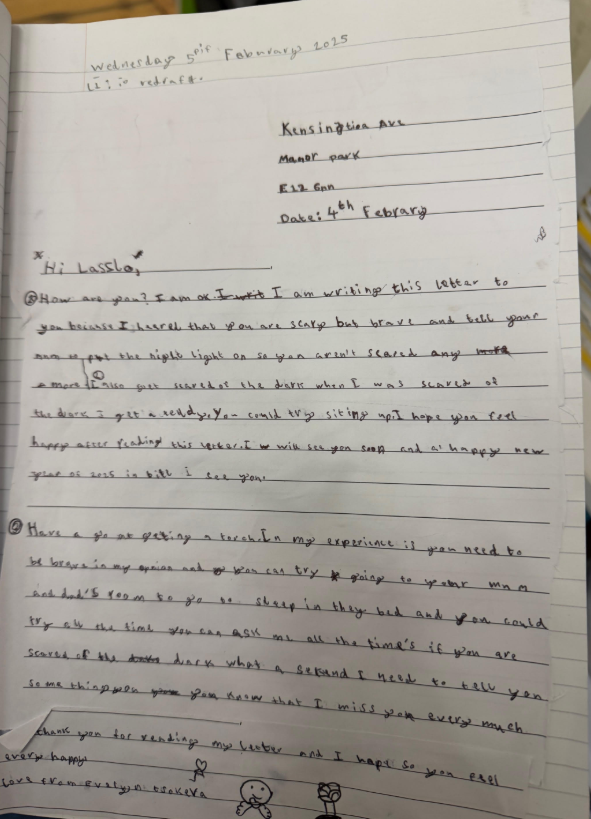 Wednesday 5th February 2025
LI: to redraft.
Kensingtion Ave
Manor park
E12 6nn
Date: 4th Febrary
Hi Lasslo,
How are you? I am ok I writ I am writing this letter to
you because I heared that you are scary but brave and tell your
mum to put the night light on so you aren't scared any more
a more I also get scared of the dark when I was scared of
the dark i get a teddy. You could try siting up. I hope you feel
happy after reading this letter. I w will see you soon and a happy new
year of 2025 in till i see you.
Have a go at geting a torch. In my experience is you need to
be brave in my opnion and you can try going to your mum
and dad's room to go to sleep in they bed and you could
try all the time you can ask me all the time's if you are
scared of the dark what a sekand I need to tell you
some thing you know that I miss you every much
thank you for reading my letter and I hape so you feel
every happy
Love from Evelyn